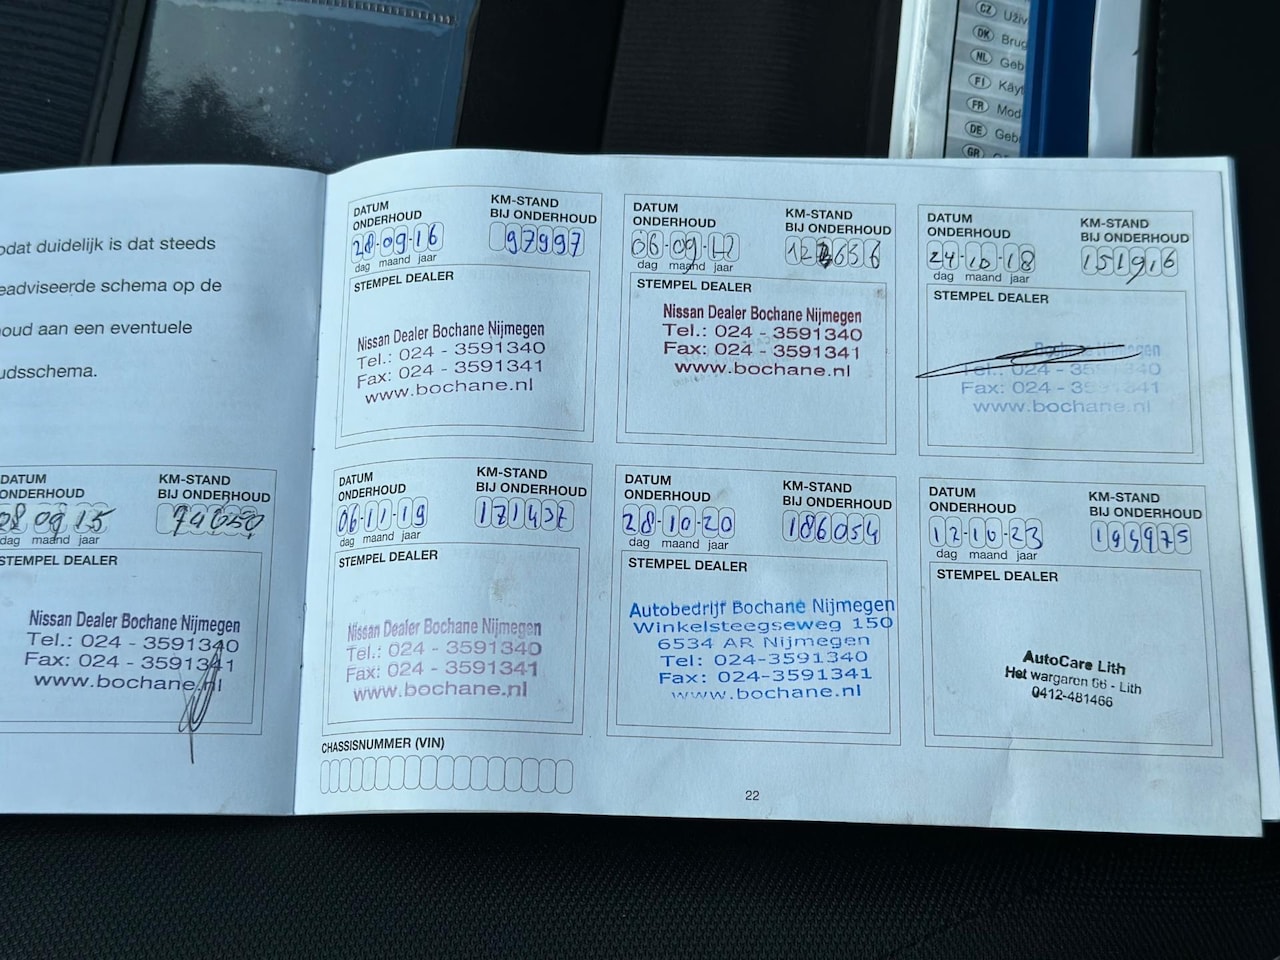 CZ Uživ
DK Brug
NL Geb
FI Käyt
FR Mod
DE Geb
GR
odat duidelijk is dat steeds
eadviseerde schema op de
oud aan een eventuele
udsschema.
DATUM ONDERHOUD
KM-STAND BIJ ONDERHOUD
08 09 15
74650
dag maand jaar
STEMPEL DEALER
Nissan Dealer Bochane Nijmegen
Tel.: 024 - 3591340
Fax: 024 - 3591341
www.bochane.nl
DATUM ONDERHOUD
KM-STAND BIJ ONDERHOUD
28-09-16
97997
dag maand jaar
STEMPEL DEALER
Nissan Dealer Bochane Nijmegen
Tel.: 024 - 3591340
Fax: 024 - 3591341
www.bochane.nl
DATUM ONDERHOUD
KM-STAND BIJ ONDERHOUD
06-09-17
dag maand jaar
STEMPEL DEALER
Nissan Dealer Bochane Nijmegen
Tel.: 024 - 3591340
Fax: 024 - 3591341
www.bochane.nl
DATUM ONDERHOUD
KM-STAND BIJ ONDERHOUD
24-10-18
151916
dag maand jaar
STEMPEL DEALER
Bochane Nijmegen
Tel.: 024 - 3591340
Fax: 024 - 3591341
www.bochane.nl
DATUM ONDERHOUD
KM-STAND BIJ ONDERHOUD
06-11-19
171437
dag maand jaar
STEMPEL DEALER
Nissan Dealer Bochane Nijmegen
Tel.: 024 - 3591340
Fax: 024 - 3591341
www.bochane.nl
DATUM ONDERHOUD
KM-STAND BIJ ONDERHOUD
28-10-20
186054
dag maand jaar
STEMPEL DEALER
Autobedrijf Bochane Nijmegen
Winkelsteegseweg 150
6534 AR Nijmegen
Tel: 024-3591340
Fax: 024-3591341
www.bochane.nl
DATUM ONDERHOUD
KM-STAND BIJ ONDERHOUD
12-10-23
195975
dag maand jaar
STEMPEL DEALER
AutoCare Lith
Het wargaren 56 - Lith
0412-481466
CHASSISNUMMER (VIN)
22